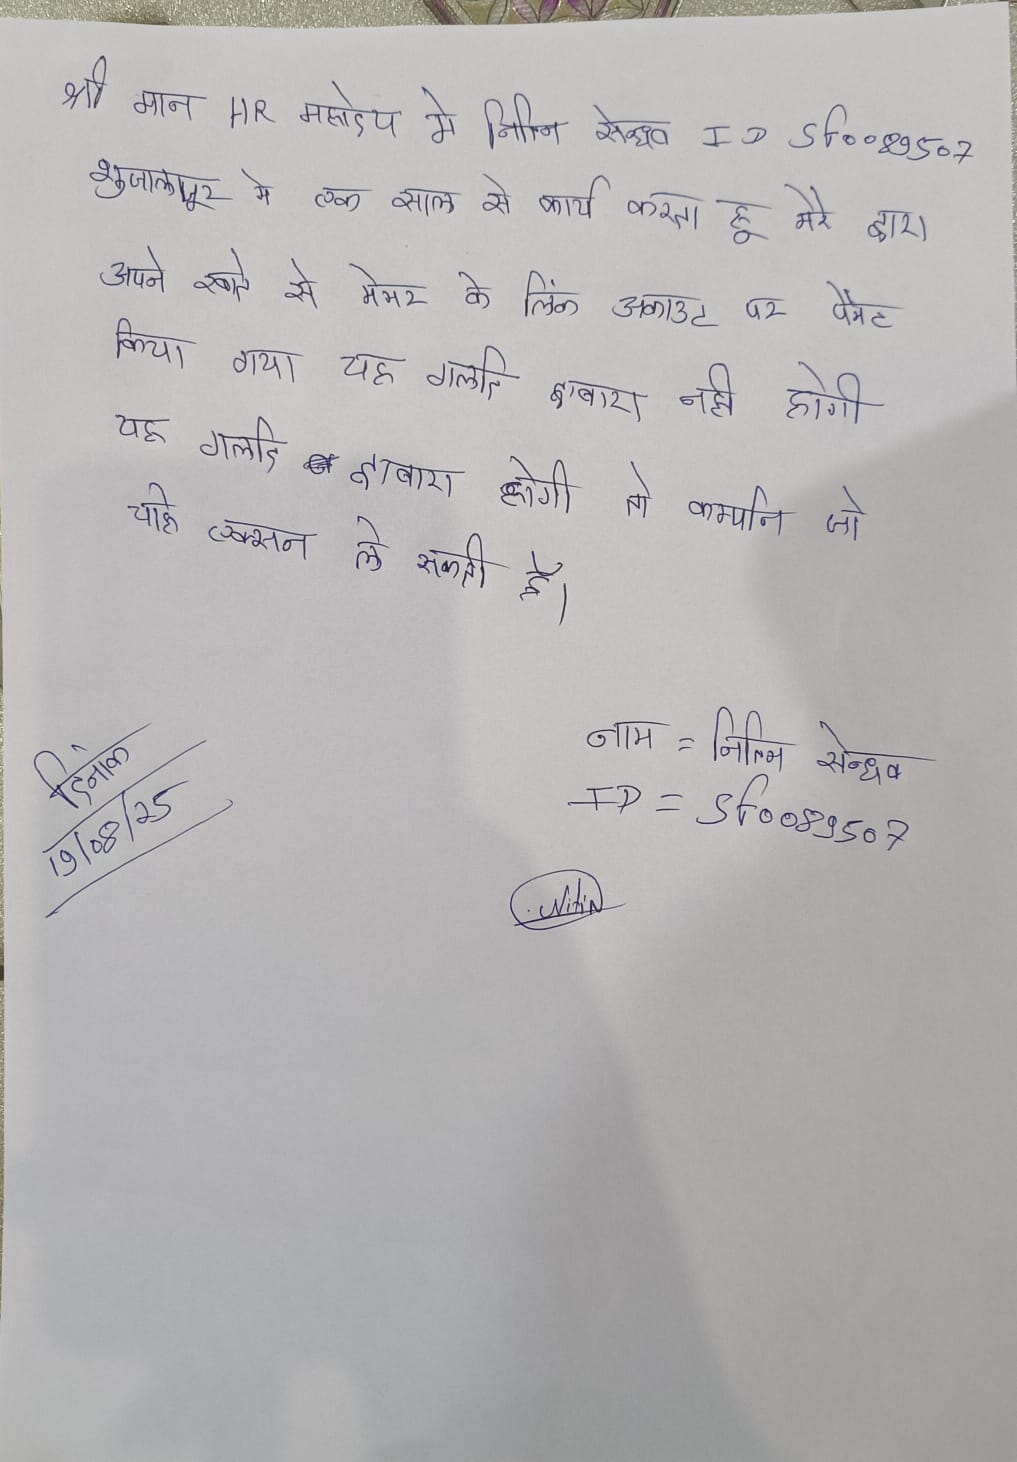 श्री मान HR महोदय मे नितिन सेन्धव ID Sf0089507
शुजालपूर मे एक साल से कार्य करता हू मेरे द्वारा
अपने खाते से मेम्बर के लिंक अकाउट पर पेमेंट
किया गया यह गलति दुबारा नही होगी
यह गलति दुबारा होगी तो कम्पनि जो
चाहे एक्सन ले सकती है।
नाम = नितिन सेन्धव
ID = Sf0089507
दिनांक
19/08/25
Nitin